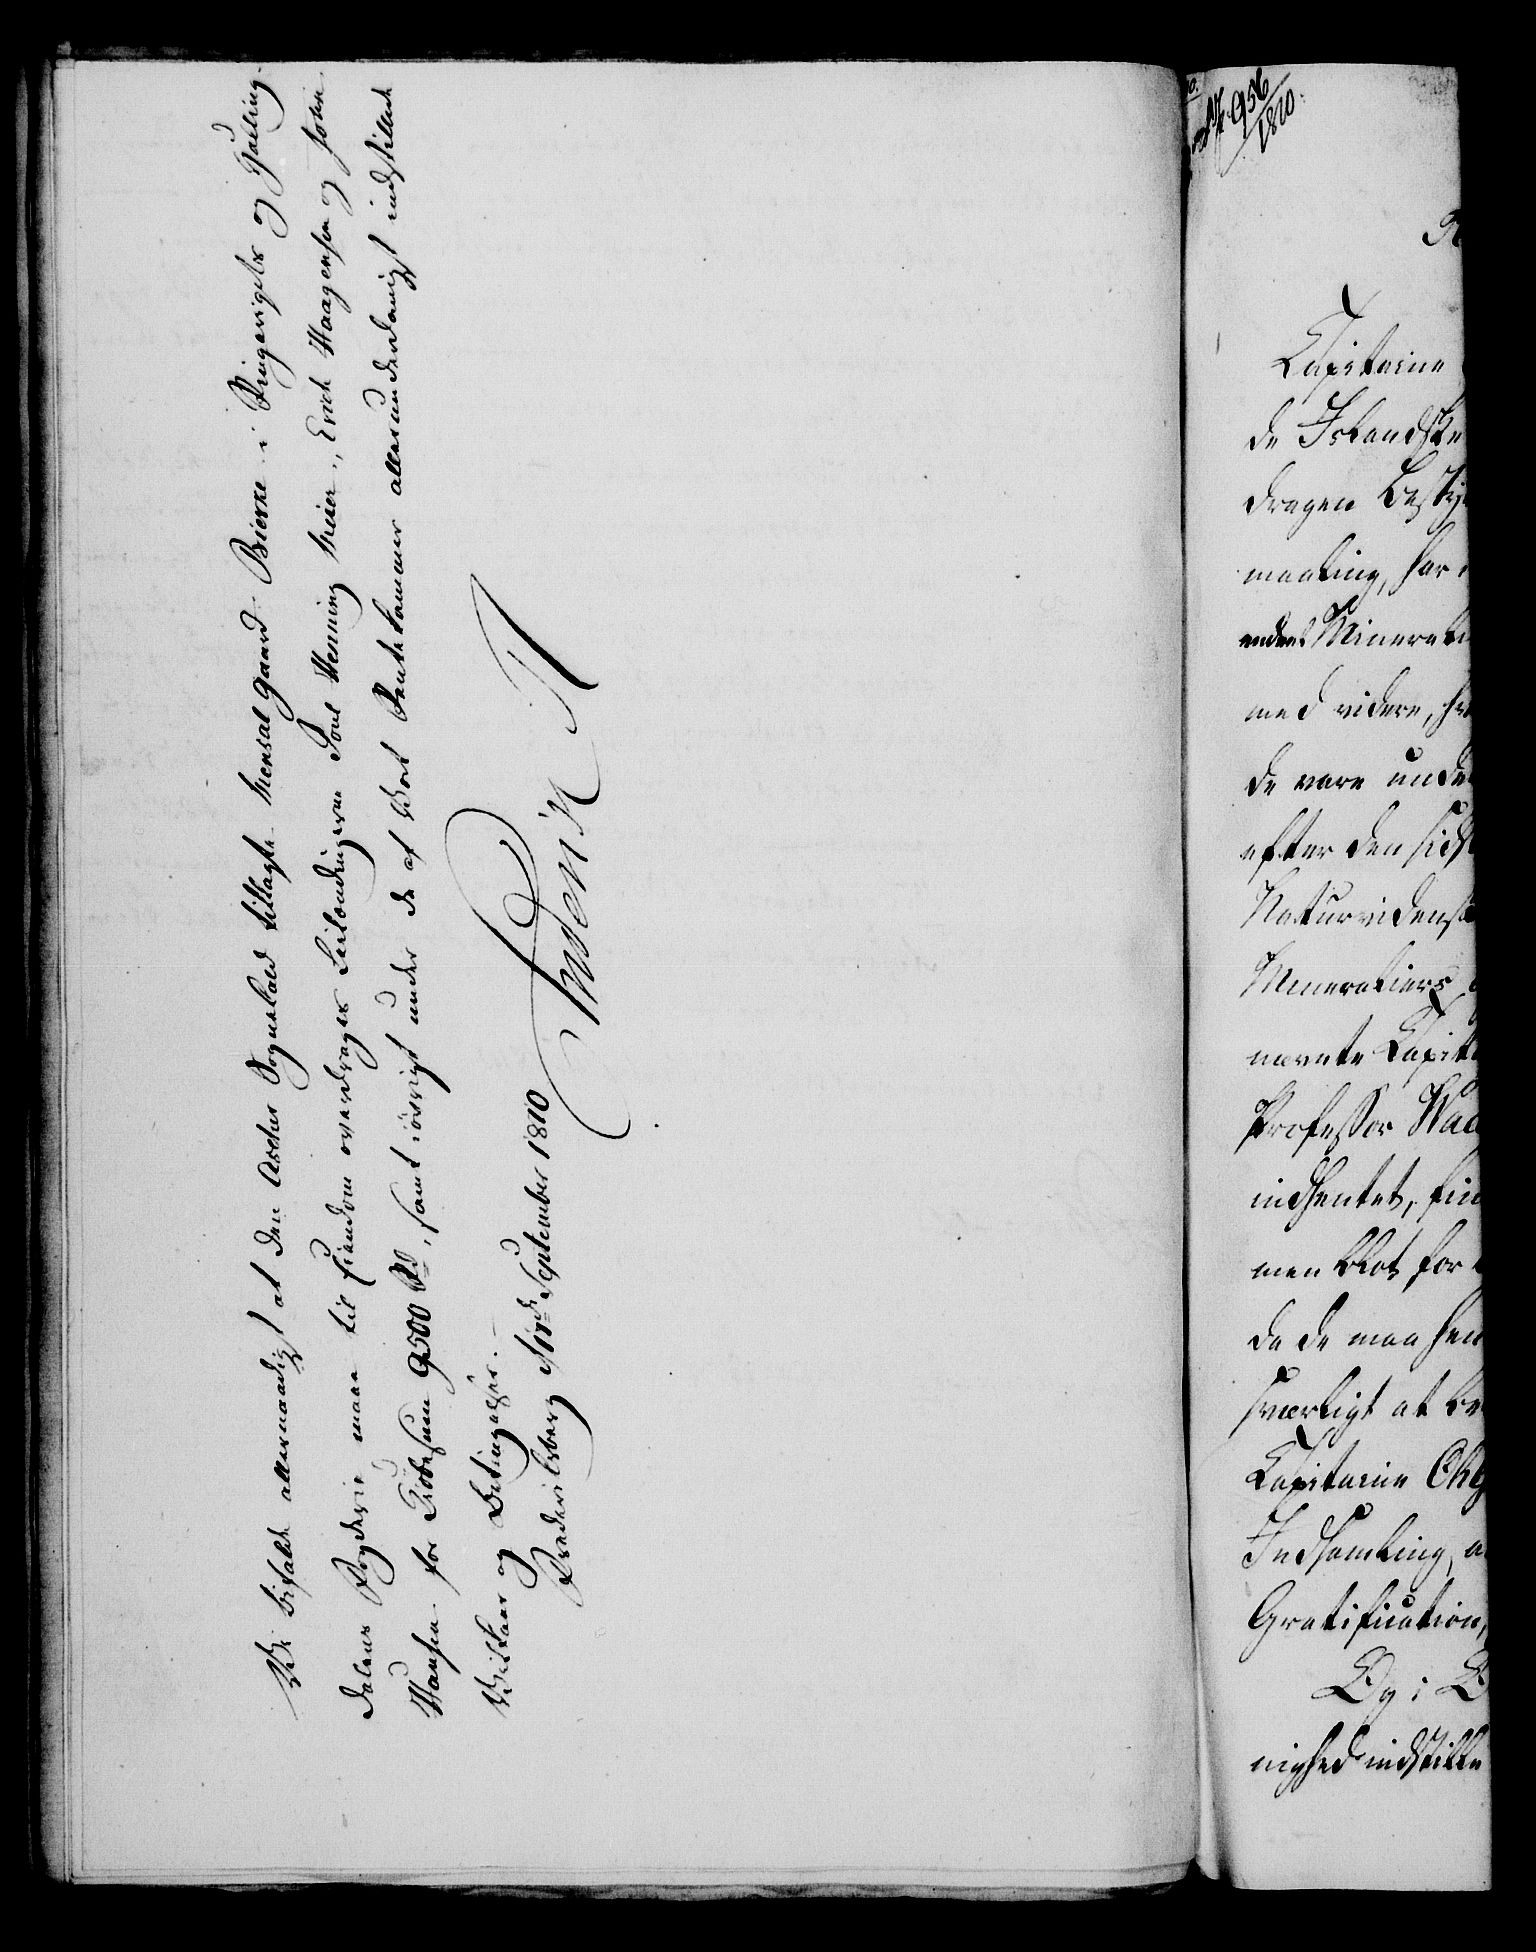 Vi bifalde allernaadigst at den Aschers Sognekald tillagte Mensal Gaard Bierke i Ringerigets og Halling-
dalens Fogderie maa til Eiendom overdrages Leilændingerne Poul Henning Meier, Erich Haagensen og John
Hansen for Kiøbesum 9500 Rd, samt iøvrigt under de af Vort Rentekammer allerunderdanigst indstillede
Vilkaar og Betingelser.
Frederiksberg September 1810
Frederik R
No 956/1810.
Capitaine
de Islandske
dragen Besty
maaling, har
andre Minerali
med videre, hv
de vare unde
efter den sidst
Naturvidensk
Mineraliers
nævnte Capit
Professor Wad
indhentet, fin
men blot for
da de maa hen
sværligt at be
Capitaine Ohl
Indsamling, a
Gratification,
Og i
nighed indstille